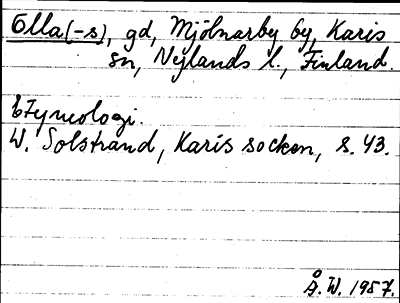 Olla(-s), gd, Mjölnarby by, Karis
sn, Nylands l., Finland.
Etymologi.
W. Solstrand, Karis socken, s. 43.
Å. W. 1957.